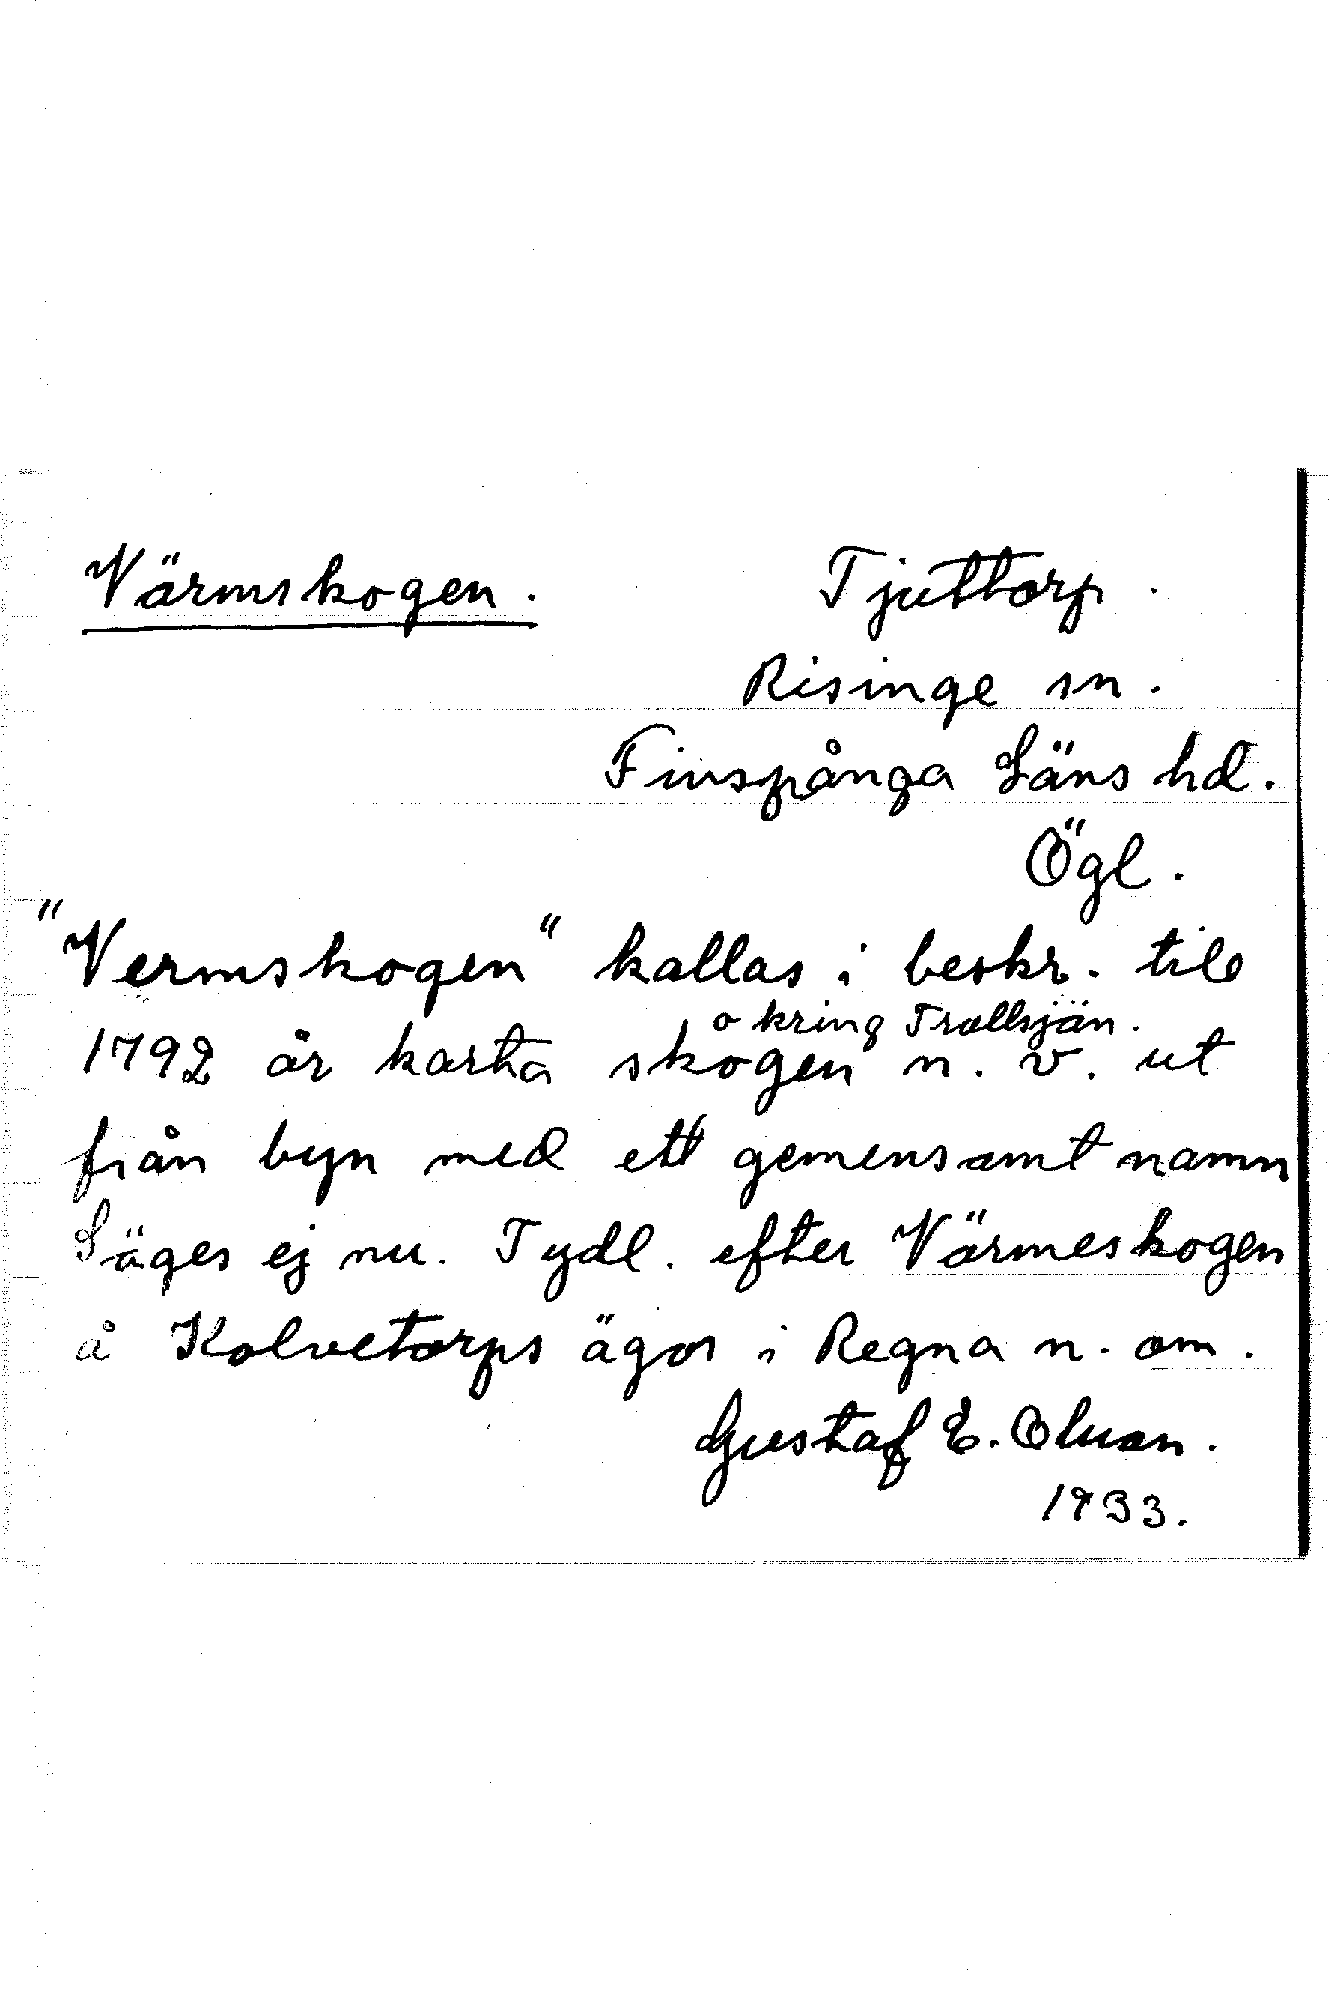 Värmskogen. Tjuttorp.
Risinge sn.
Finspånga Läns hd.
Ögl.
"Vermskogen" kallas i beskr. till
o kring Trollsjön.
1792 år karta skogen n. v. ut
från byn med ett gemensamt namn
Säges ej nu. Tydl. efter Värmeskogen
å Kolvetorps ägor i Regna n. om.
Gustaf E. Olsson.
1933.